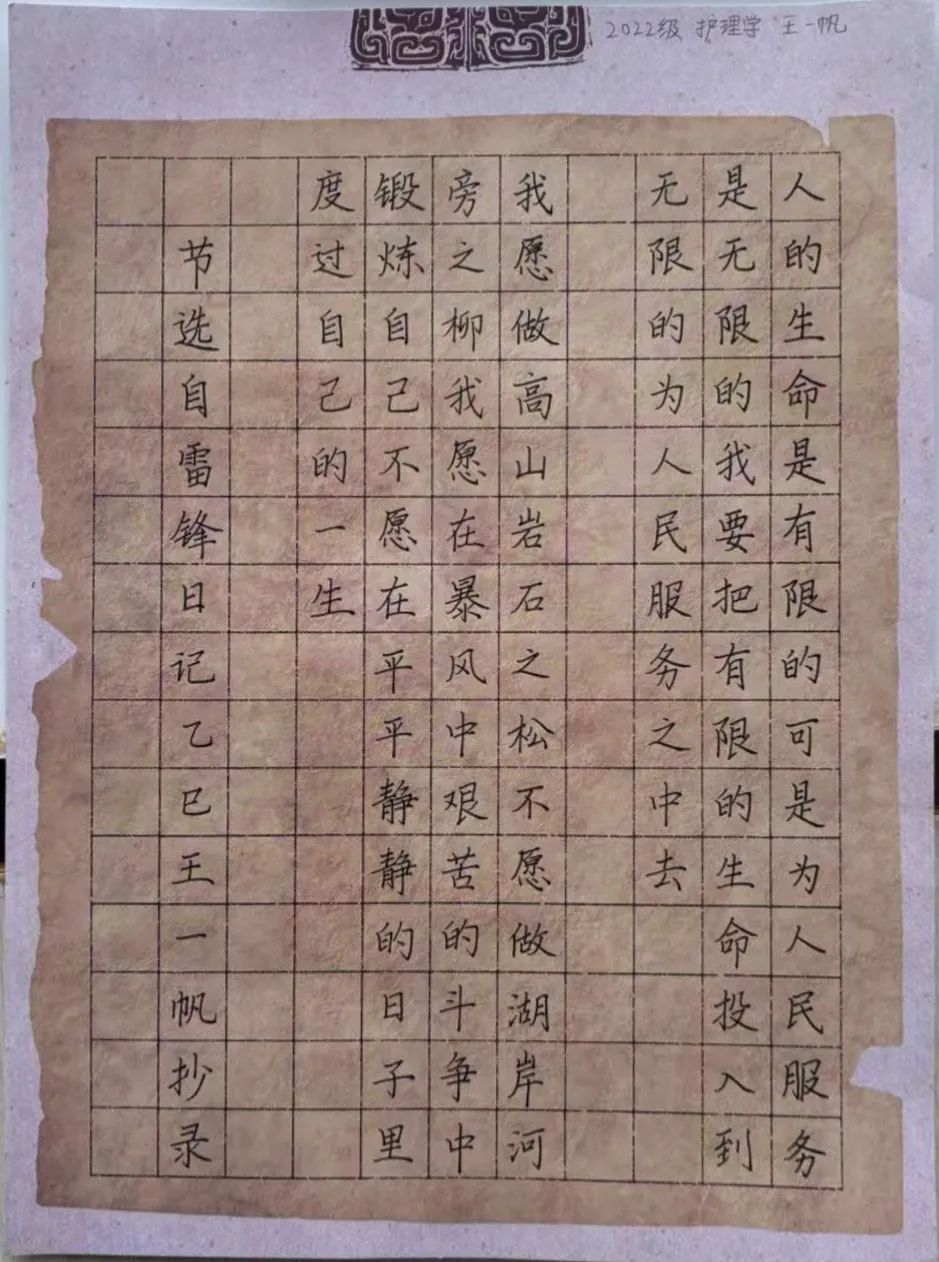 2022级 护理学 王一帆
人的生命是有限的可是为人民服务
是无限的我要把有限的生命投入到
无限的为人民服务之中去
我愿做高山岩石之松不愿做湖岸河
旁之柳我愿在暴风中艰苦的斗争中
锻炼自己不愿在平平静静的日子里
度过自己的一生
节选自雷锋日记乙巳王一帆抄录